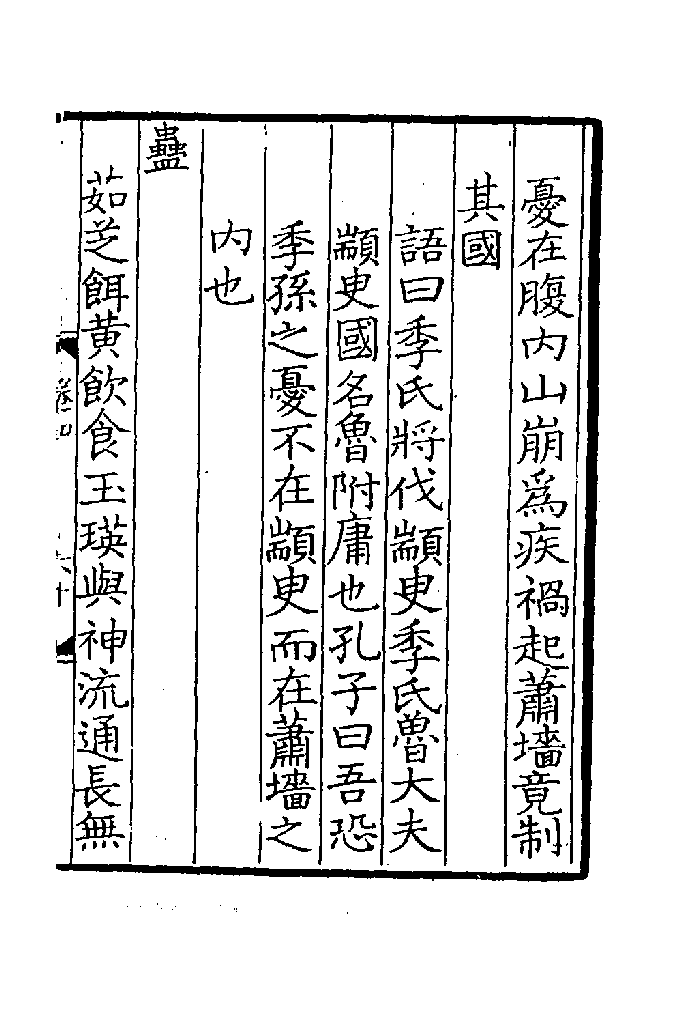 憂在腹内山崩爲疾禍起蕭墻竟制
其國
語曰季氏將伐顓㬰季氏魯大夫
顓㬰國名魯附庸也孔子曰吾恐
季孫之憂不在顓㬰而在蕭墻之
内也
蠱
茹芝餌黄飲食玉瑛與神流通長無